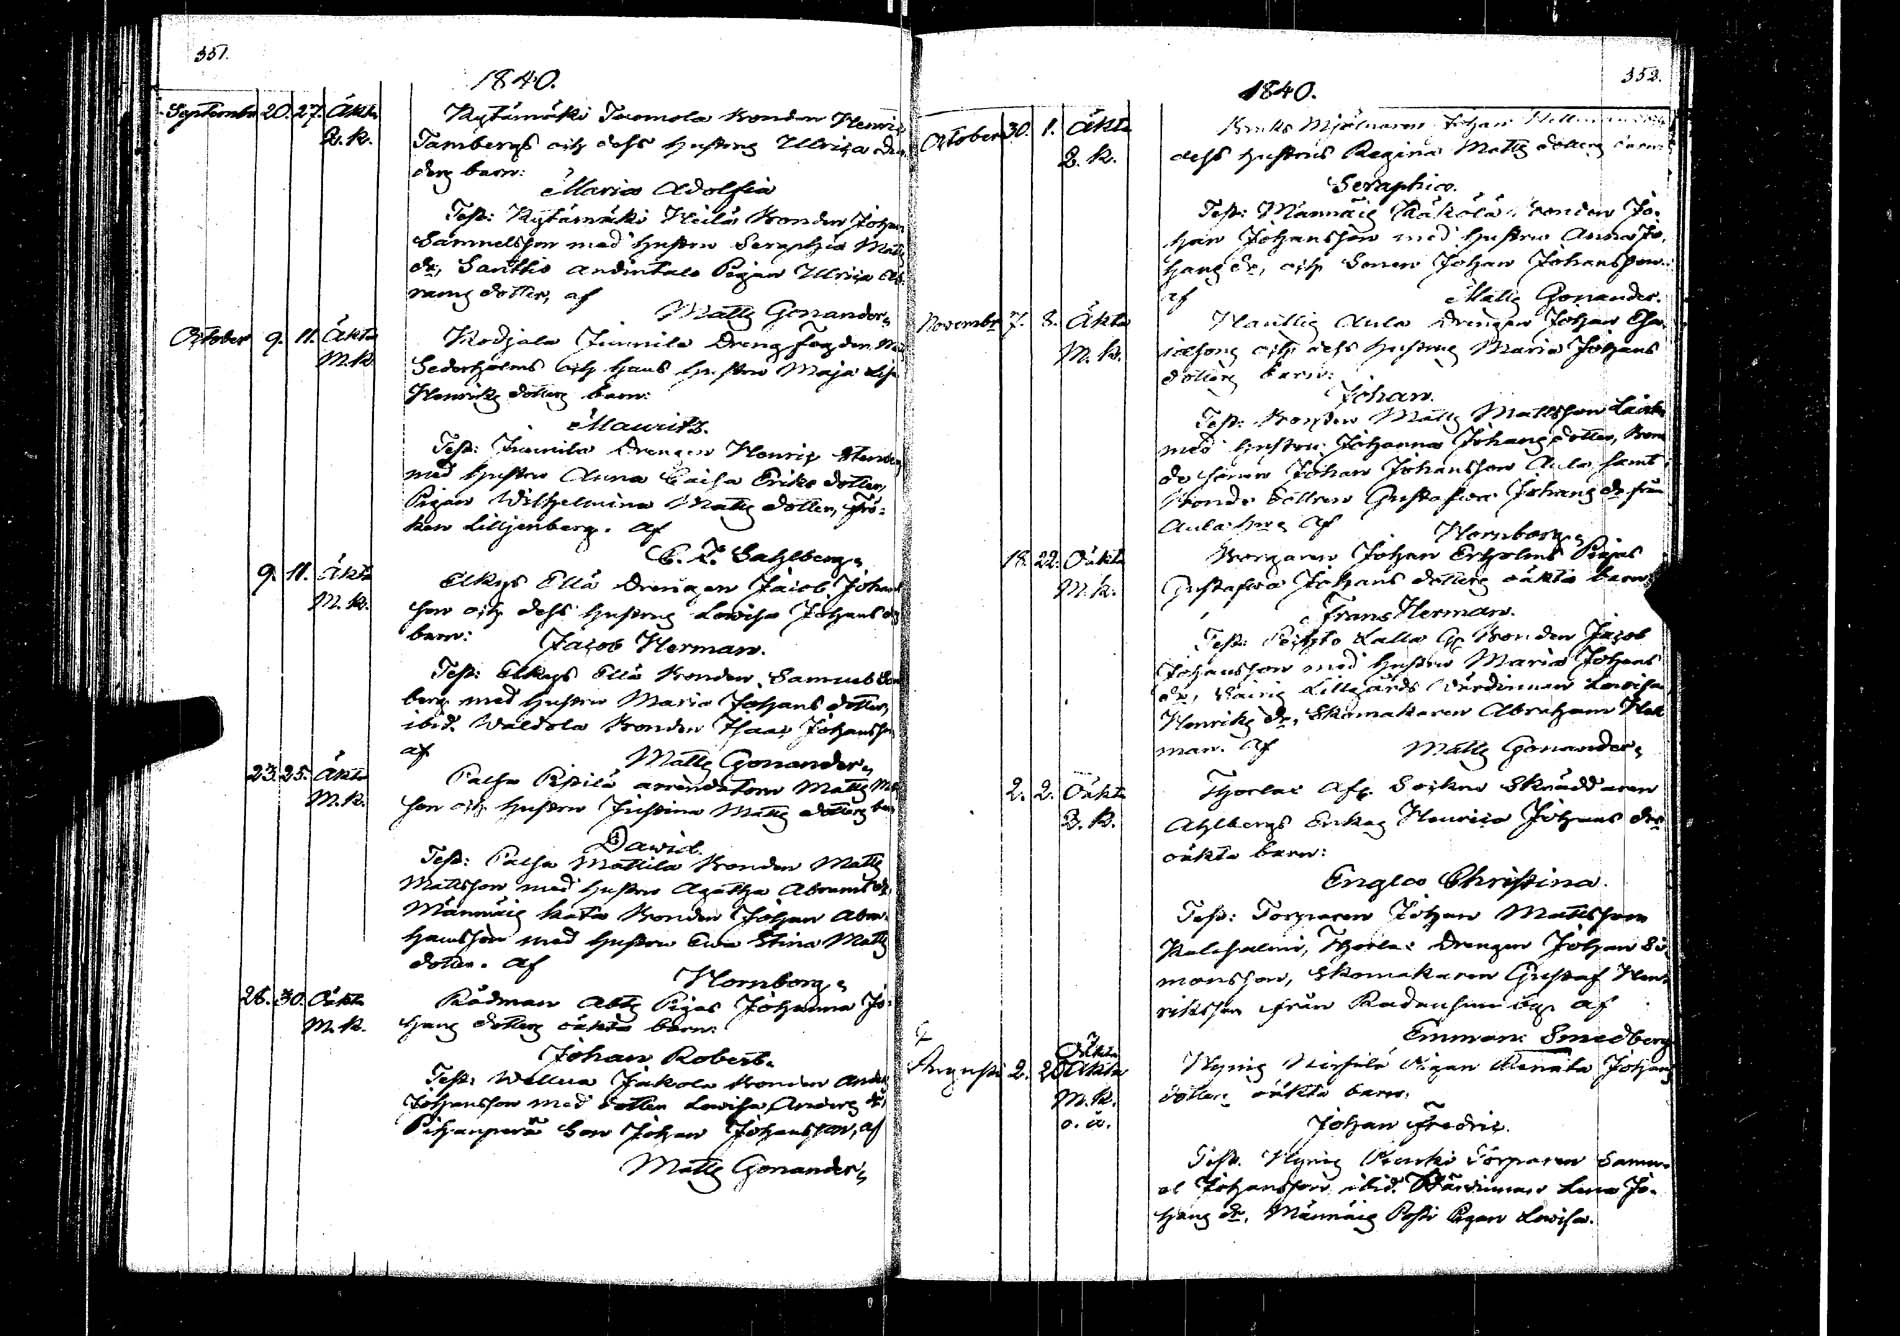 351.
1840.
September 20. 27. Äkta Kytämäki Tuomola Bonden Henric
Q. K. Tambergs och dess hustrus Ulrica
ders barn:
Maria Adolfia
Test: Kytämäki Heilä Bonden Johan
Samuelsson med hustru Seraphia Matts
dr, Santtio andintalo Pigan Ulrica Ab-
rams dotter, af
Matts Gonander.
October 9. 11. Äkta Kodjala Junnila Dreng Fogden
M.K. Sederholms och hans hustru Maja Lisa
Henriks dotters barn:
Mauritz.
Test: Junnila Drengen Henric Stenberg
med hustru Anna Caisa Eriks dotter,
Pigan Wilhelmina Matts dotter, Frö-
ken Lilljenberg. af
C. R. Sahlberg.
9. 11. Äkta Elkys Ellä Drengen Jacob Johans
M.K. son och dess hustrus Lowisa Johans drs
barn: Jacob Herman.
Test: Elkys Ellä Bonden Samuel
berg med hustru Maria Johans dotter,
ibid. Waldola Bonden Isaac Johansson
af
Matts Gonander.
23. 25. Äkta Palsa Pipilä arrendatorn Matts Mats
M.K. son och hustru Justina Matts dotters barn
Dawid.
Test: Palsa Mattila Bonden Matts
Mattsson med hustru Agatha Abrams dr,
Männäis kata Bonden Johan Abra-
hamsson med hustru Ewa Stina Matts
dotter. af
Hornborg.
26. 30. Oäkta Rådman Abtz Pigas Johanna Jo-
M.K. hans dotters oäkta barn:
Johan Robert.
Test: Wellua Jakola Bonden Anders
Johansson med dotter Lowisa Anders dr,
Pihanperä Son Johan Johansson, af
Matts Gonander.
352.
1840.
October 30. 1. Äkta Bruks Mjölnaren Johan Hellmans och
Q. K. dess hustrus Regina Matts dotters barn:
Seraphia.
Test: Männäis Käkölä Bonden Jo-
han Johansson med hustru Anna Jo-
hans dr, och Sonen Johan Johansson.
af Matts Gonander.
November 7. 8. Äkta Nauttis Aula Drengen Johan Esa-
M.K. iassons och dess hustrus Maria Johans
dotters barn:
Johan.
Test: Bonden Matts Mattsson
med hustru Johanna Johans dotter, Bon-
de sonen Johan Johansson Aula samt
Bonde dottren Gustafwa Johans dr från
Aula byn. af Hornborg.
18. 22. Oäkta Borgaren Johan Ekholms Pigas
M.K. Gustafwa Johans dotters oäkta barn:
Frans Herman.
Test: Peihto Lalla By Bonden Jacob
Johansson med hustru Maria Johans
dr, Lillgårds Värdinnan Lowisa
Henriks dr, Skomakaren Abraham Hell
man. af Matts Gonander.
2. 2. Oäkta Thorlax Afs. Socken Skräddaren
Q. K. Ahlbergs Enkas Henrica Johans drs
oäkta barn:
Engla Christina.
Test: Torparen Johan Mattsson
Kalesalmi, Thorlax Drengen Johan Si-
monsson, Skomakaren Gustaf Hen-
riksson från Radansuu by. af
Emman: Smedberg
Oäkta
Augusti 2. 20. Äkta Hynis Kirsilä Pigan Renata Johans
M.K. dotters oäkta barn:
o. ä.
Johan Fredric.
Test. Hynis Torparen Samu-
el Johansson ibid. Värdinnan Lena Jo-
hans dr, Männäis Posti Pigan Lowisa.